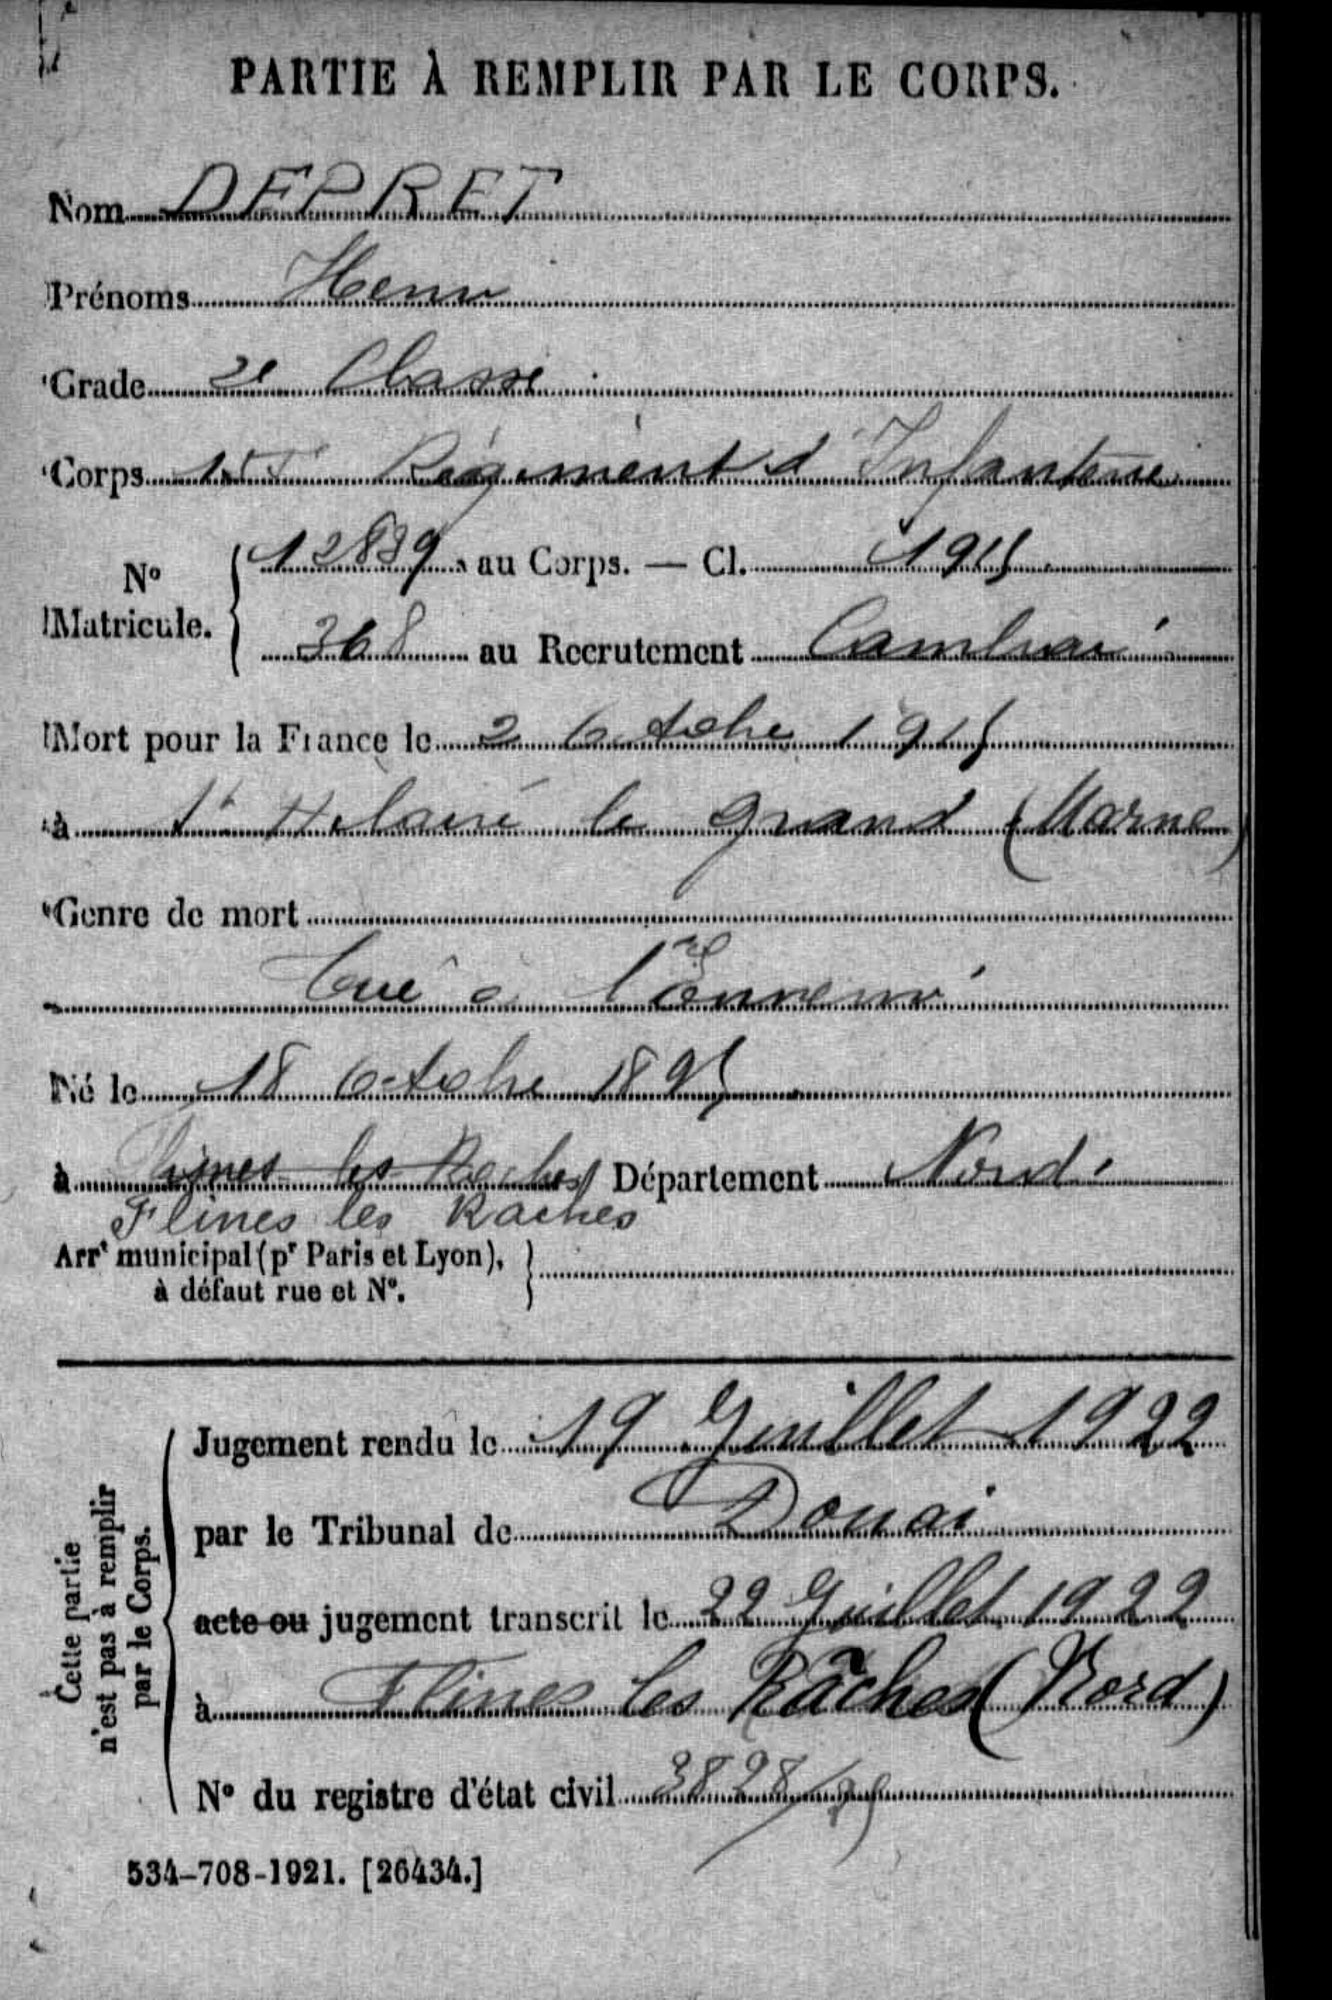 PARTIE À REMPLIR PAR LE CORPS.
Nom DEPRET
Prénoms Henri
Grade 2e Classe
Corps Régiment d'Infanterie
No Matricule. 12839 au Corps. — Cl. 1915
368 au Recrutement Cambrai
Mort pour la France le 2 Octobre 1915
à St Hilaire le grand (Marne)
Genre de mort
Tué à l'Ennemi
Né le 18 Octobre 1895
à Flines les Raches Département Nord
Flines les Raches
Arrt municipal (pr Paris et Lyon),
à défaut rue et No.
Cette partie
n'est pas à remplir
par le Corps.
Jugement rendu le 19 Juillet 1922
par le Tribunal de Douai
acte ou jugement transcrit le 22 Juillet 1922
à Flines les Râches (Nord)
No du registre d'état civil 3828/
534-708-1921. [26434.]